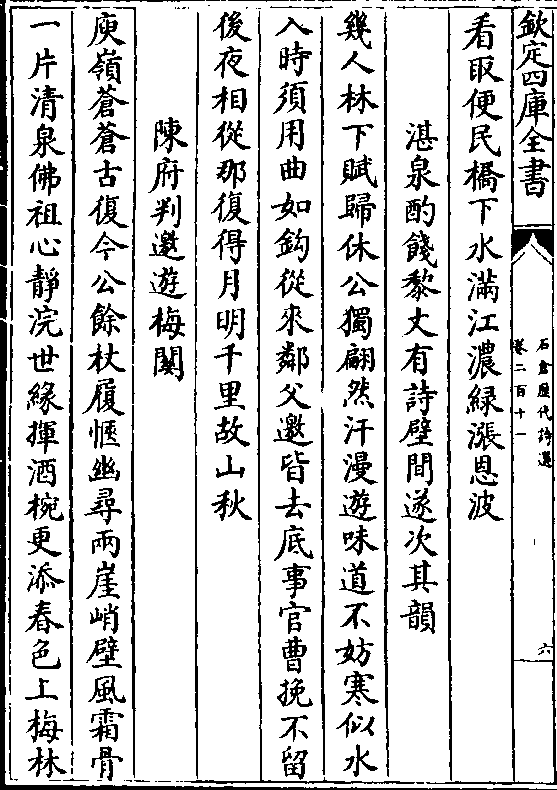 欽定四庫全書
石倉歷代詩選
卷二百十一
六
看取便民橋下水滿江濃緑漲恩波
湛泉酌餞黎丈有詩壁間遂次其韻
幾人林下賦歸休公獨翩然汗漫遊味道不妨寒似水
入時須用曲如鈎從來鄰父邀皆去底事官曹挽不留
後夜相從那復得月明千里故山秋
陳府判邀遊梅關
庾嶺蒼蒼古復今公餘杖履愜幽尋兩崖峭壁風霜骨
一片清泉佛祖心靜浣世緣揮酒椀更添春色上梅林